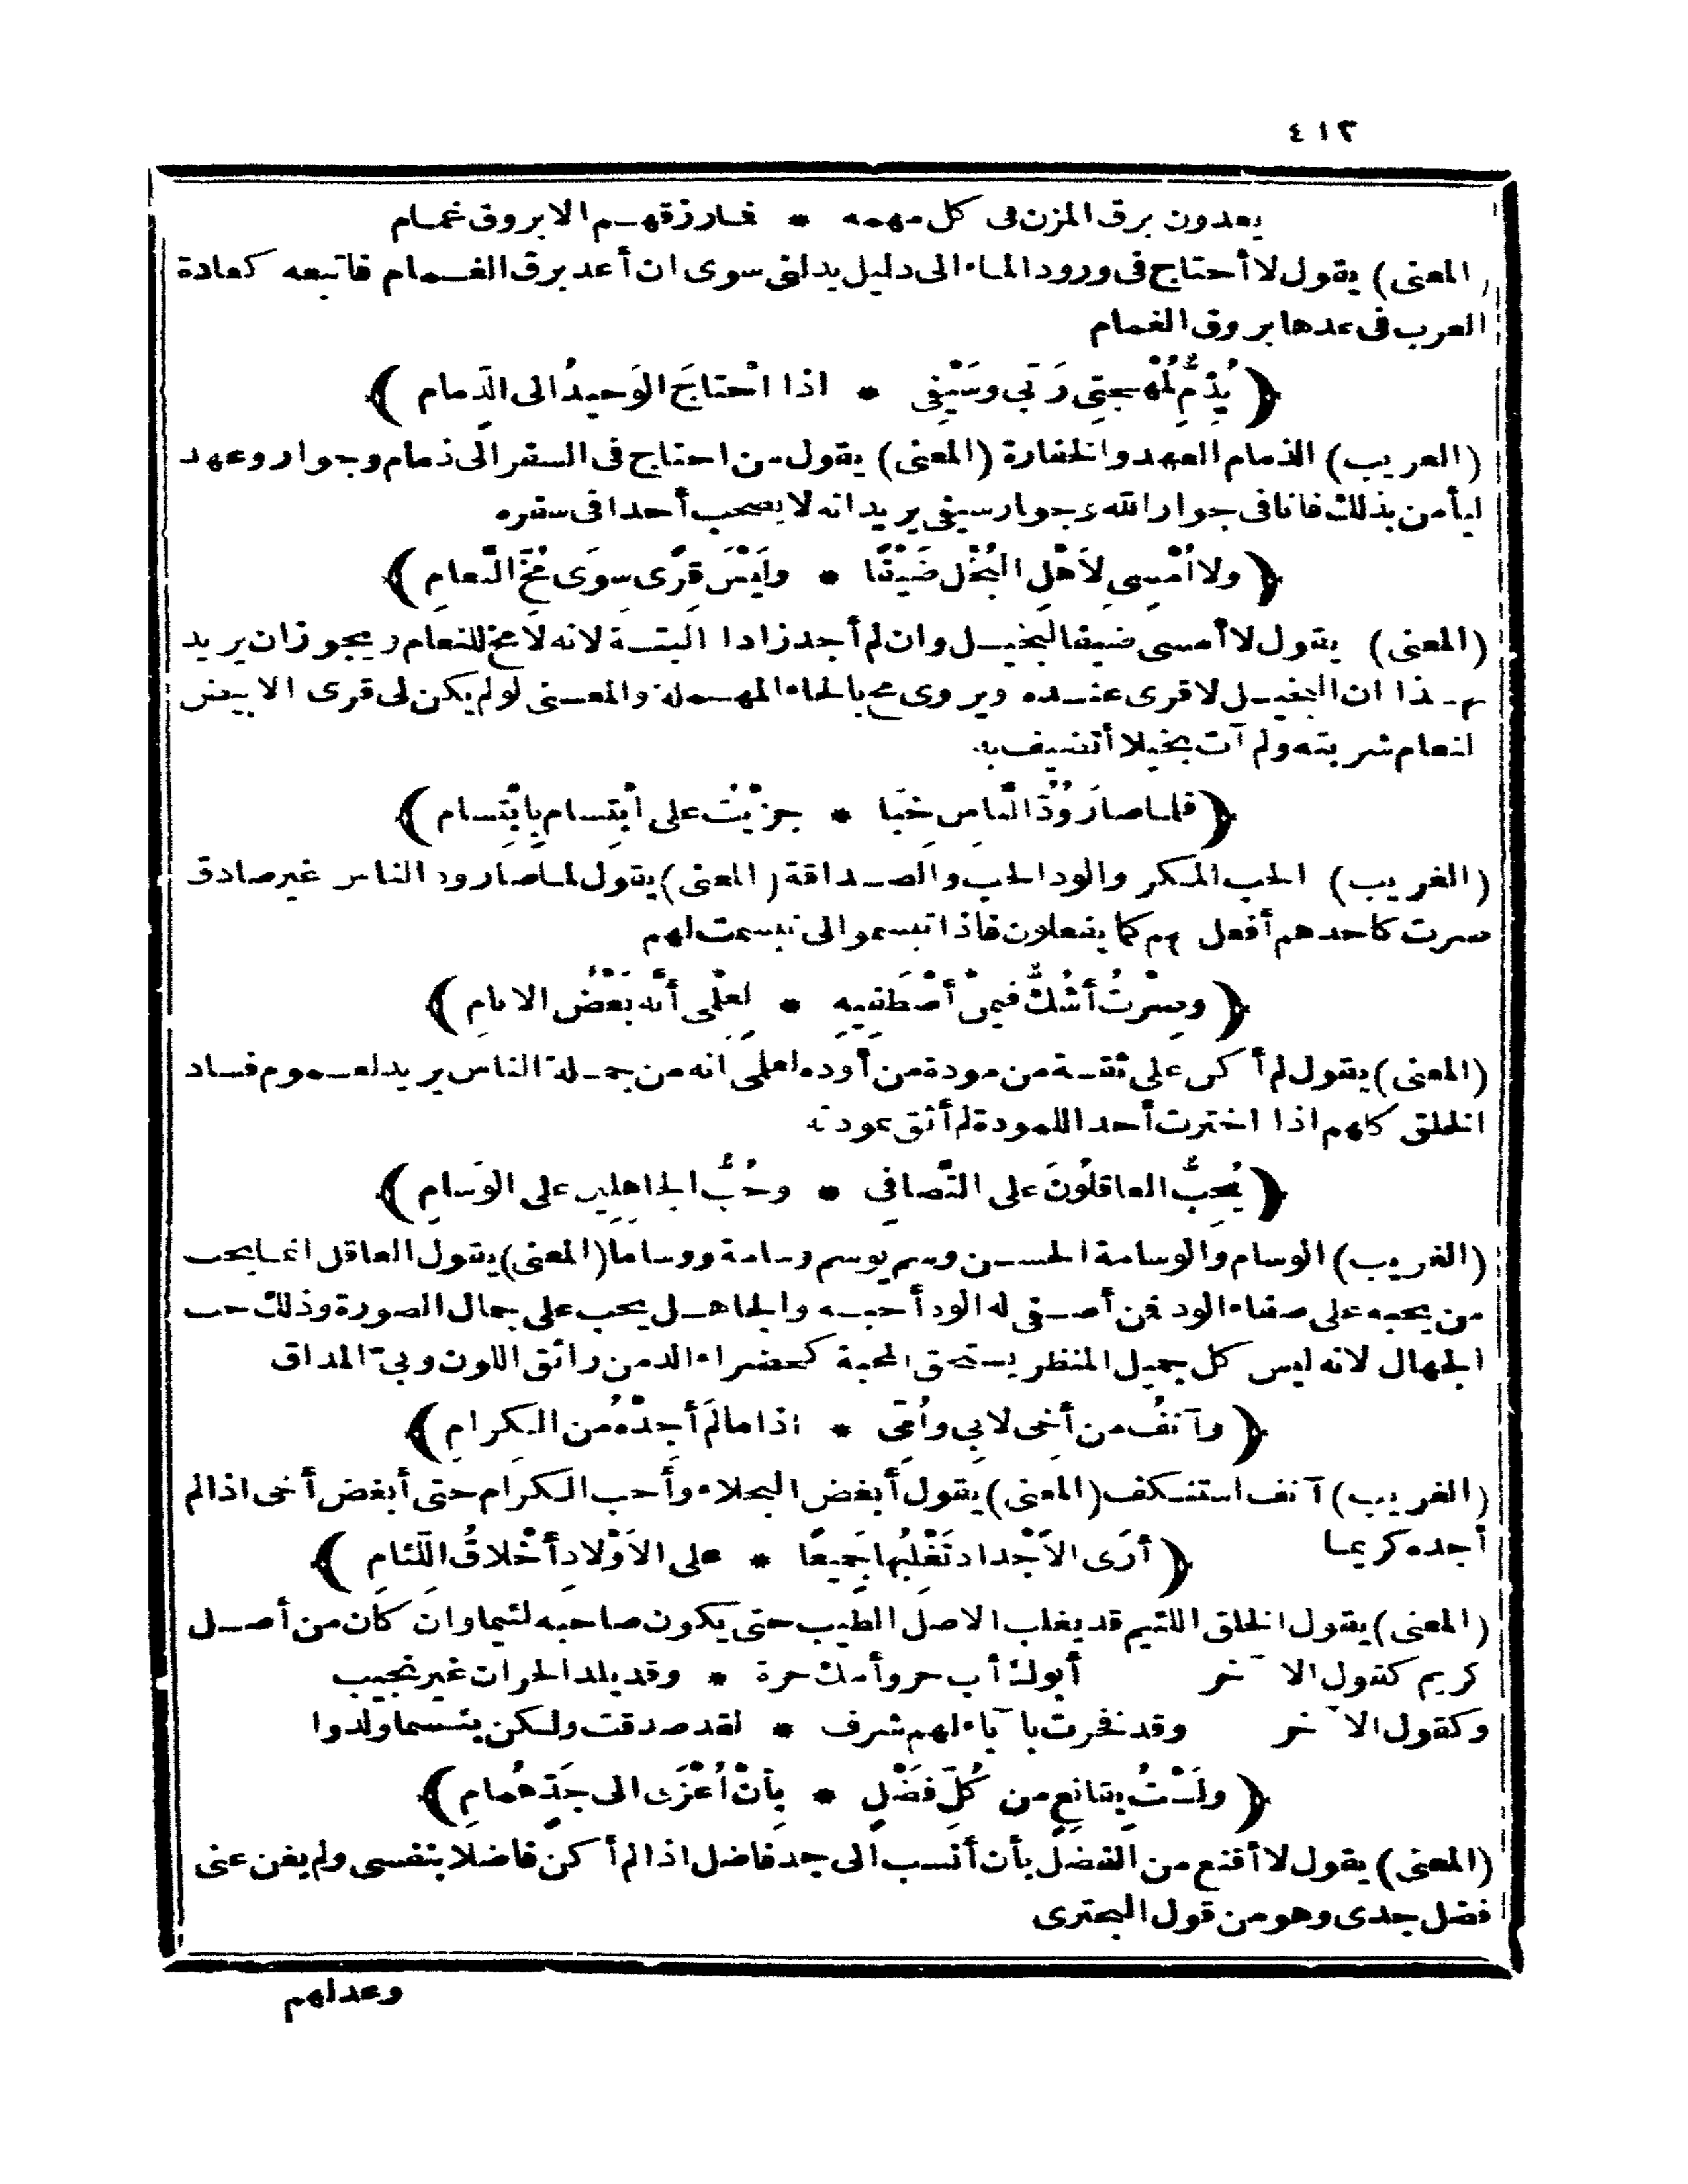 ٤١٢
يعدون برق المزن فى كل مهمه * فما رزقهم الا بروق غمام
(المعنى) يقول لا أحتاج فى ورود الماء الى دليل يدلنى سوى ان أعد برق الغمام فاتبعه كعادة
العرب فى عدها بروق الغمام
﴿ يُذِمُّ لِمُهْجتِى رَبِّى وسَيْفِى * اذا احْتاجَ الوَحيدُ الى الذِّمام ﴾
(الغريب) الذمام العهد والخفارة (المعنى) يقول من احتاج فى السفر الى ذمام وجوار وعهد
ليأمن بذلك فانا فى جوار الله وجوار سيفى يريد انه لا يصحب أحدا فى سفره
﴿ ولا اُمْسِى لِاَهْلِ البُخْلِ ضَيْفًا * ولَيْسَ قِرًى سِوَى مُخِّ النَّعامِ ﴾
(المعنى) يقول لا أمسى ضيفا لبخيل وان لم أجد زادا البتة لانه لا مخ للنعام ويجوز ان يريد
بهذا ان البخيل لا قرى عنده ويروى مح بالحاء المهملة والمعنى لو لم يكن لى قرى الا بيض
لنعام شربته ولم آت بخيلا أتضيف به
﴿ فلما صارَ وُدُّ النّاسِ خِبًّا * جزَيْتُ على ابْتِسامٍ بِابْتِسام ﴾
(الغريب) الخب المكر والود الحب والصداقة (المعنى) يقول لما صار ود الناس غير صادق
صرت كاحدهم أفعل بهم كما يفعلون فاذا تبسموا الى تبسمت لهم
﴿ وصِرْتُ أشُكُّ فيمَنْ أصْطَفِيهِ * لِعِلْمِى أنّه بَعْضُ الانامِ ﴾
(المعنى) يقول لم أكن على ثقة من مودة من أوده لعلمى انه من جملة الناس يريد لعموم فساد
الخلق كلهم اذا اخترت أحدا للمودة لم أثق بمودته
﴿ يُحِبُّ العاقلُونَ على التَّصافى * وحُبُّ الجاهلِين على الوَسامِ ﴾
(الغريب) الوسام والوسامة الحسن وسم يوسم وسامة ووساما (المعنى) يقول العاقل انما يحب
من يحبه على صفاء الود فمن أصفى له الود أحبه والجاهل يحب على جمال الصورة وذلك حب
الجهال لانه ليس كل جميل المنظر يستحق المحبة كخضراء الدمن رائق اللون وبىء المذاق
﴿ وآنَفُ من أخى لابى واُمِّى * اذا ما لَمْ أجِدْهُ من الكرامِ ﴾
(الغريب) آنف استنكف (المعنى) يقول أبغض البخلاء وأحب الكرام حتى أبغض أخى اذا لم
أجده كريما ﴿ أرَى الاَجْدادَ تَغْلِبُها جَمِيعًا * على الاَوْلادِ أخْلاقُ اللّئامِ ﴾
(المعنى) يقول الخلق اللئيم قد يغلب الاصل الطيب حتى يكون صاحبه لئيما وان كان من أصل
كريم كقول الآخر أبوك أب حر وأمك حرة * وقد يلد الحران غير نجيب
وكقول الآخر وقد نفخرت بآباء لهم شرف * لقد صدقت ولكن بئسما ولدوا
﴿ ولَسْتُ بِقانِعٍ من كُلِّ فضْلٍ * بِأنْ اُعْزَى الى جَدٍّ هُمامِ ﴾
(المعنى) يقول لا أقنع من الفضل بأن أنسب الى جد فاضل اذا لم أكن فاضلا بنفسى ولم يغن عنى
فضل جدى وهو من قول البحترى
وعدلهم